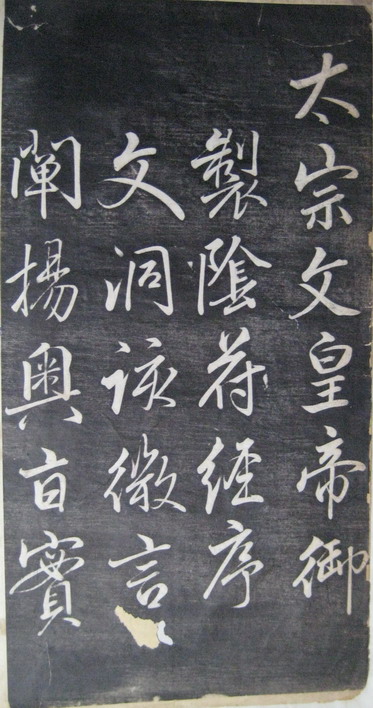 太宗文皇帝御
製陰符經序
文洞該微言
闡揚奧旨實